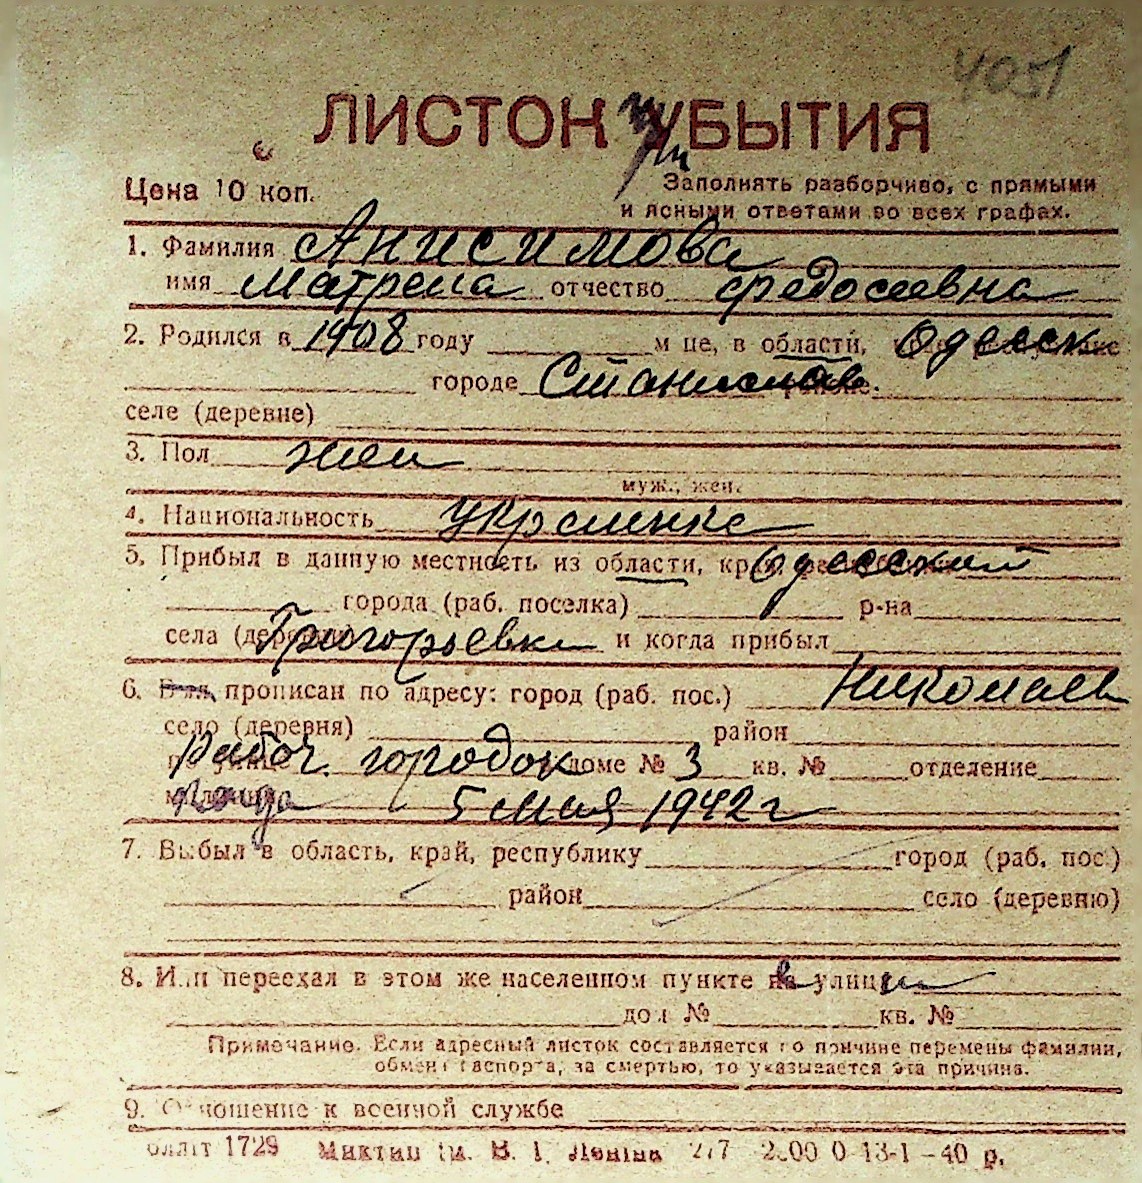 4051
ЛИСТОК УБЫТИЯ
Цена 10 коп.
Заполнять разборчиво, с прямыми
и ясными ответами во всех графах.
1. Фамилия Анисимова
имя Матрена отчество Федосеевна
2. Родился в 1908 году м це, в области, Одесск
городе Станислав.
селе (деревне)
3. Пол жен
муж., жен.
4. Национальность Украинка
5. Прибыл в данную местность из области, Одесский
города (раб. поселка) р-на
села Григорьевка и когда прибыл
6. прописан по адресу: город (раб. пос.) Николаев
село (деревня) район
Рабоч. городок доме № 3 кв. № отделение
5 мая 1942 г
7. Выбыл в область, край, республику город (раб. пос.)
район село (деревню)
8. Или переехал в этом же населенном пункте на улицу
дом № кв. №
Примечание. Если адресный листок составляется по причине перемены фамилии,
обмена паспорта, за смертью, то указывается эта причина.
9. Отношение к военной службе
1729 ім. В. І. Леніна 13-1-40 р.